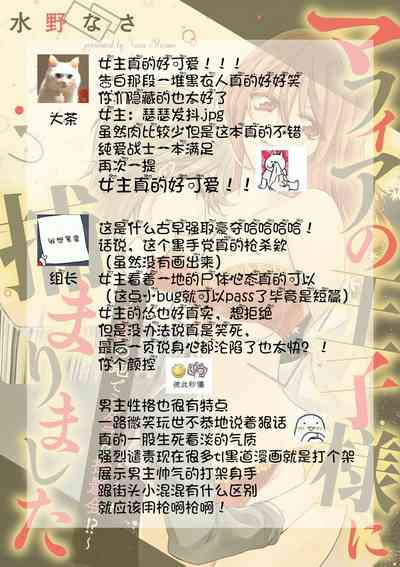 水野なさ
presented by Nasa Mizuno
マフィアの王子様に
捕まりました
女主真的好可爱！！！
告白那段一堆黑衣人真的好好笑
你们隐藏的也太好了
女主：瑟瑟发抖.jpg
虽然肉比较少但是这本真的不错
纯爱战士一本满足
再次一提
女主真的好可爱！！
大茶
这是什么古早强取豪夺哈哈哈哈！
话说、这个黑手党真的枪杀欸
（虽然没有画出来）
女主看着一地的尸体心态真的可以
（这点小bug就可以pass了毕竟是短篇）
女主的怂也好真实、想拒绝
但是没办法说真是笑死、
最后一页说身心都沦陷了也太快？！
你个颜控
组长
彼此彼此
男主性格也很有特点
一路微笑玩世不恭地说着狠话
真的一股生死看淡的气质
强烈谴责现在很多tl黑道漫画就是打个架
展示男主帅气的打架身手
跟街头小混混有什么区别
就应该用枪啊枪啊！